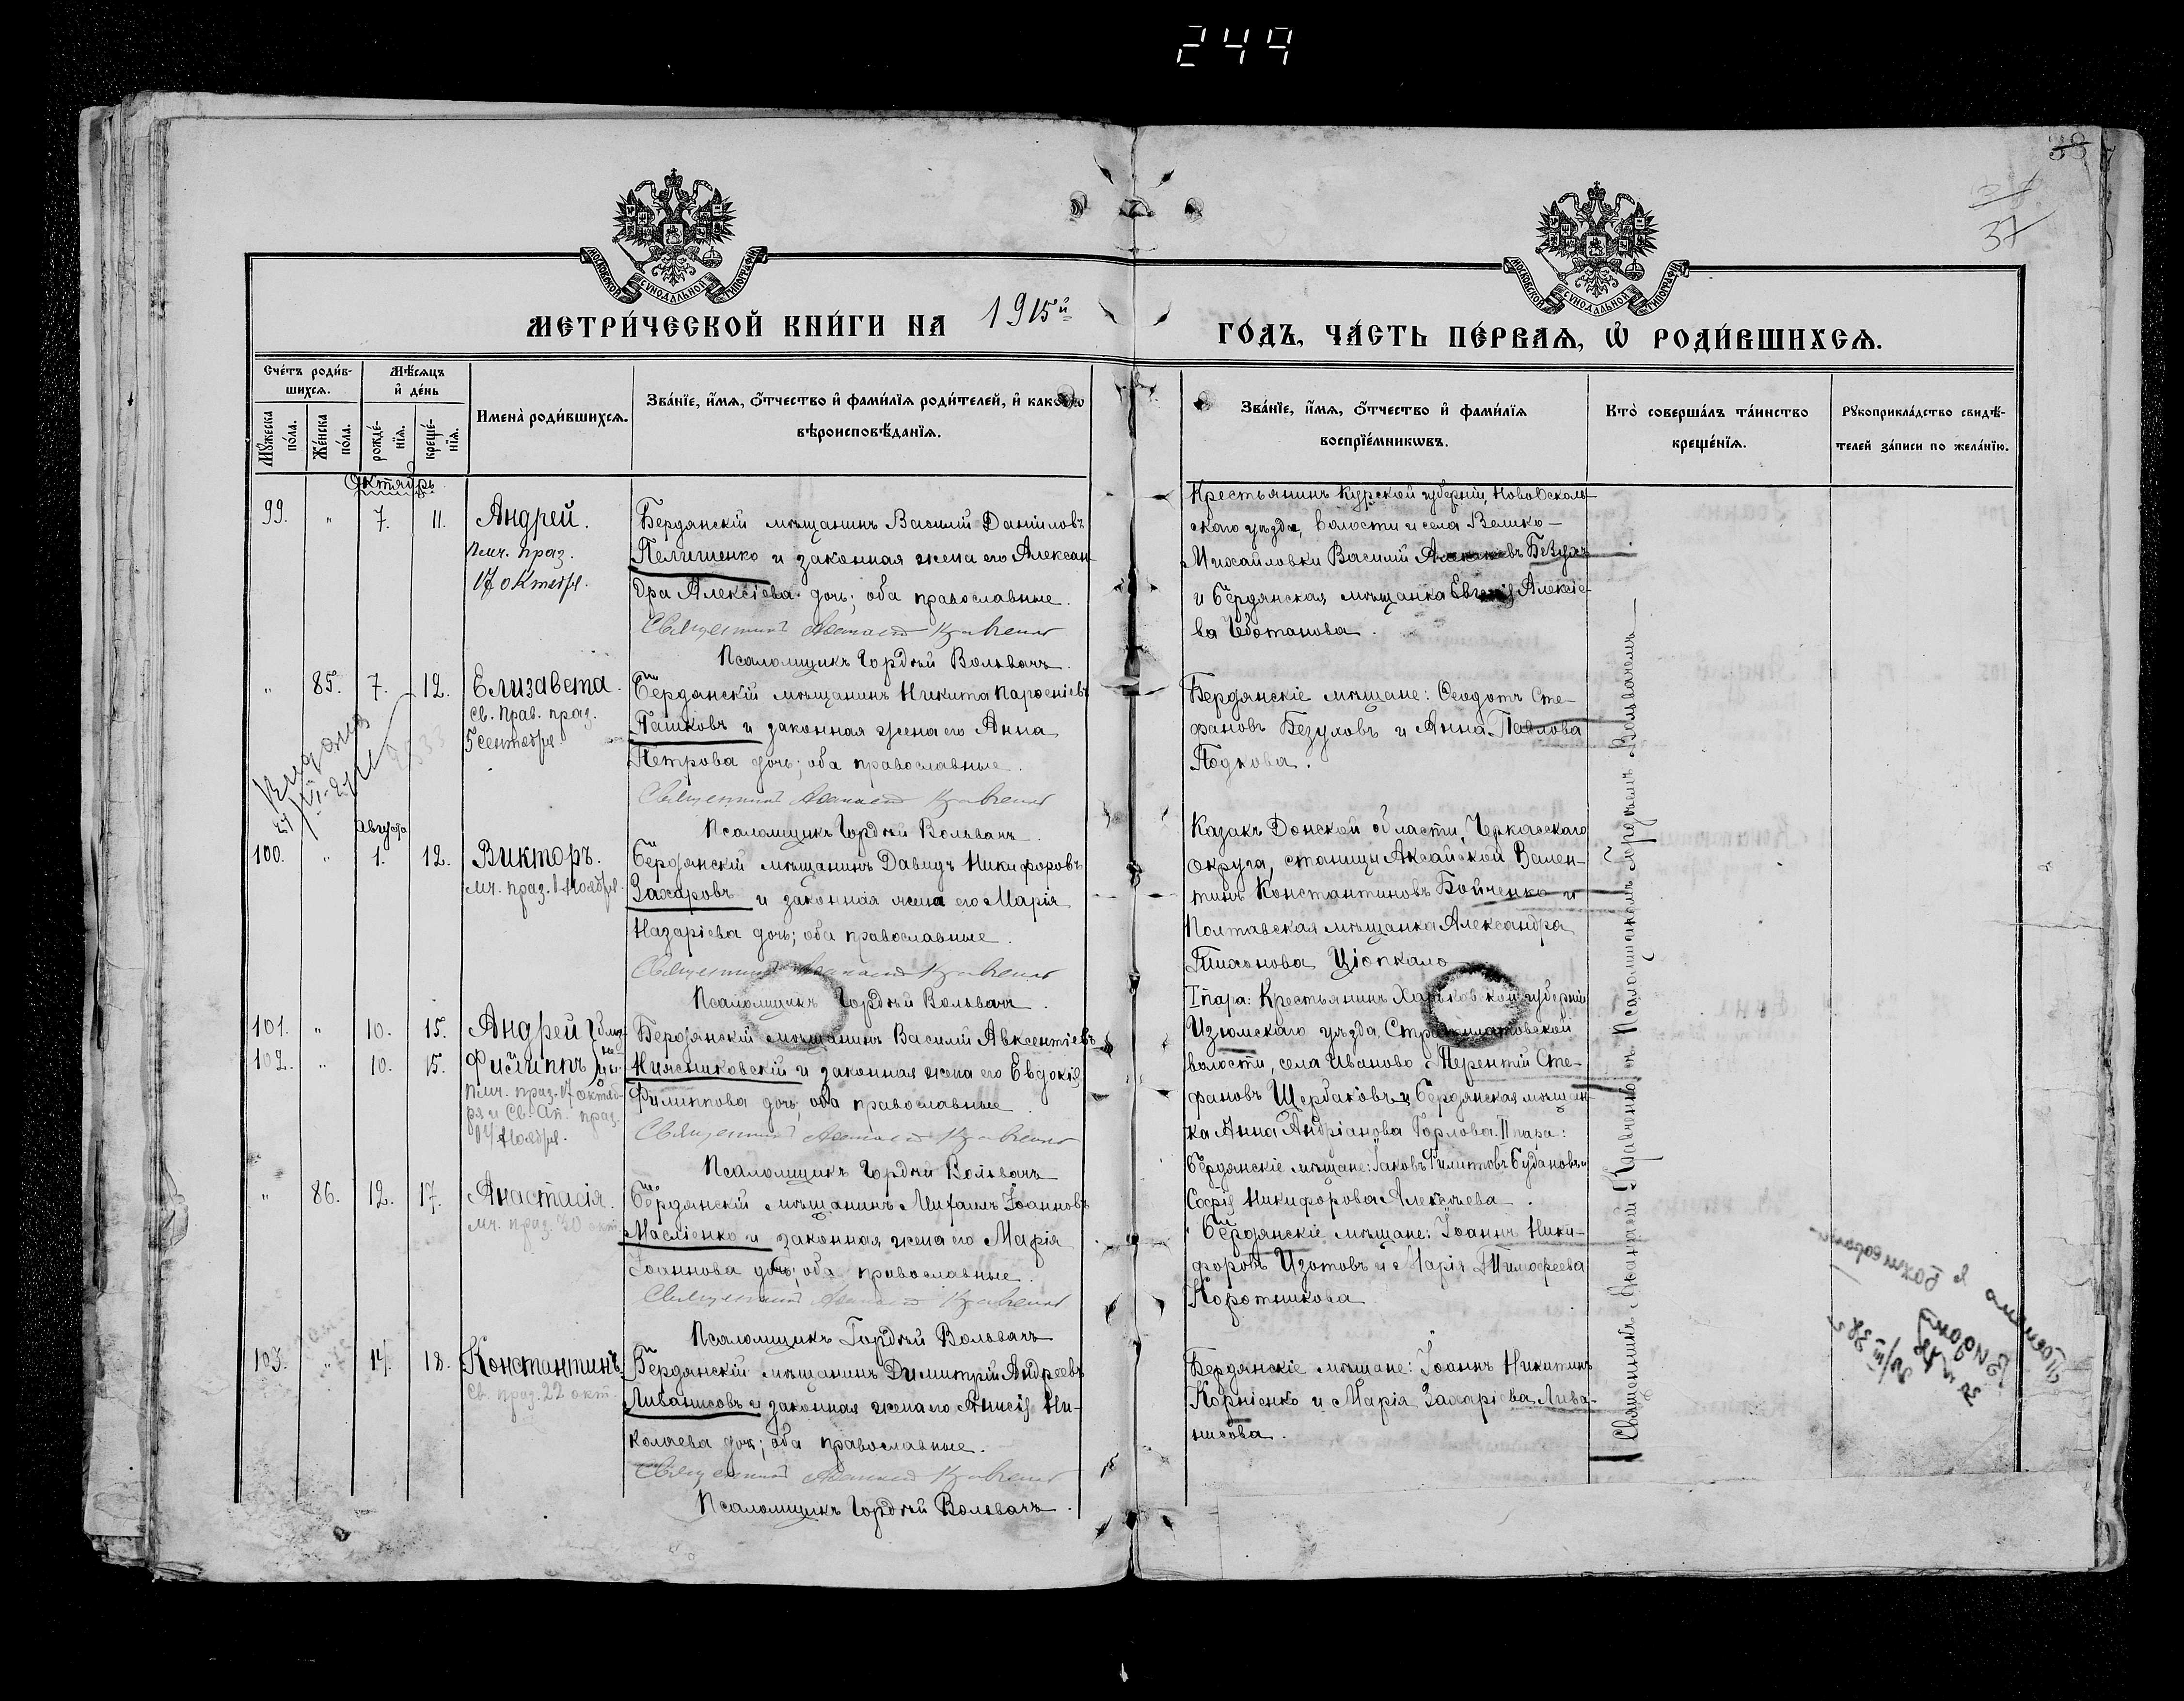 249
38
37
МОСКОВСКОЙ СѴНОДАЛЬНОЙ ТИПОГРАФІИ
МОСКОВСКОЙ СѴНОДАЛЬНОЙ ТИПОГРАФІИ
МЕТРИ́ЧЕСКОЙ КНИ́ГИ НА 1915й
ГО́ДЪ, ЧА́СТЬ ПЕ́РВАѦ, Ѡ҆ РОДИ́ВШИХСѦ.
Сче́тъ роди́в-
шихсѧ.
Мꙋ́жеска
по́ла.
Же́нска
по́ла.
Мѣ́сѧцъ
и҆ де́нь
рожде́-
нїѧ.
креще́-
нїѧ.
Имена̀ роди́вшихсѧ.
Зва́нїе, и҆́мѧ, ѻ҆́тчество и҆ фами́лїѧ роди́телей, и҆ како́гѡ
вѣроисповѣ́данїѧ.
Зва́нїе, и҆́мѧ, ѻ҆́тчество и҆ фами́лїѧ
воспрїе́мникѡвъ.
Кто̀ соверша́лъ та́инство
креще́нїѧ.
Рꙋкоприкла́дство свидѣ́-
телей за́писи по жела́нїю.
Октябрь
99. " 7. 11. Андрей.
Пмч. праз.
17 октябр.
Бердянскій мѣщанинъ Василій Даніиловъ
Пелишенко и законная жена его Алексан-
дра Алексіева дочь; оба православные.
Священникъ Кравченко
Псаломщикъ Гордѣй Вольвачъ.
Крестьянинъ Курской губерніи, НовоОсколь-
скаго уѣзда, волости и села Велико-
Михайловки Василій Безухъ
и Бердянская мѣщанка Евгенія Алексіе-
ва Чеботанова.
" 85. 7. 12. Елизавета.
Св. Прав. праз.
5 сентября.
Бердянскій мѣщанинъ Никита Парѳеніевъ
Пашковъ и законная жена его Анна
Петрова дочь; оба православные.
Священникъ Кравченко
Псаломщикъ Гордѣй Вольвачъ.
Бердянскіе мѣщане: Ѳеодотъ Сте-
фановъ Безуховъ и Анна Павлова
Подкова.
августа
100. " 1. 12. Викторъ.
мч. праз. 1 Ноября.
Бердянскій мѣщанинъ Давидъ Никифоровъ
Захаровъ и законная жена его Марія
Назаріева дочь; оба православные.
Священникъ Кравченко
Псаломщикъ Гордѣй Вольвачъ.
Казакъ Донской области, Черкасскаго
округа, станицы Аксайской Вален-
тинъ Константиновъ Бойченко и
Полтавская мѣщанка Александра
Тихонова Ціопкало
101. " 10. 15. Андрей
102. " 10. 15. Филиппъ
близ-
не-
цы.
Пмч. праз. 17 октяб-
ря и Св. Ап. праз.
14 Ноября.
Бердянскій мѣщанинъ Василій Авксентіевъ
Нижниковскій и законная жена его Евдокія
Филиппова дочь; оба православные.
Священникъ Кравченко
Псаломщикъ Гордѣй Вольвачъ
I пара: Крестьянинъ Харьковской губерніи
Изюмскаго уѣзда, волости, села Иваново Терентій Сте-
фановъ Щербаковъ и Бердянская мѣщан-
ка Анна Андріанова Горлова. II пара:
Бердянскіе мѣщане: Іаковъ Филиповъ Будановъ и
Софія Никифорова Алексѣева.
" 86. 12. 17. Анастасія.
мч. праз. 30 окт.
Бердянскій мѣщанинъ Михаилъ Іоанновъ
Масліенко и законная жена его Марія
Іоаннова дочь; оба православные.
Священникъ Кравченко
Псаломщикъ Гордѣй Вольвачъ
Бердянскіе мѣщане: Іоаннъ Ники-
форовъ Изотовъ и Марія Тимофеева
Коротникова
103. " 14. 18. Константинъ.
Св. праз. 22 окт.
Бердянскій мѣщанинъ Димитрій Андреевъ
Ливанисовъ и законная жена его Анисія Ни-
колаева дочь; оба православные.
Священникъ Кравченко
Псаломщикъ Гордѣй Вольвачъ.
Бердянскіе мѣщане: Іоаннъ Никитинъ
Корніенко и Марія Захаріева Лива-
нисова.
Священникъ Аѳанасій Кравченко съ Псаломщикомъ Гордѣемъ Вольвачемъ